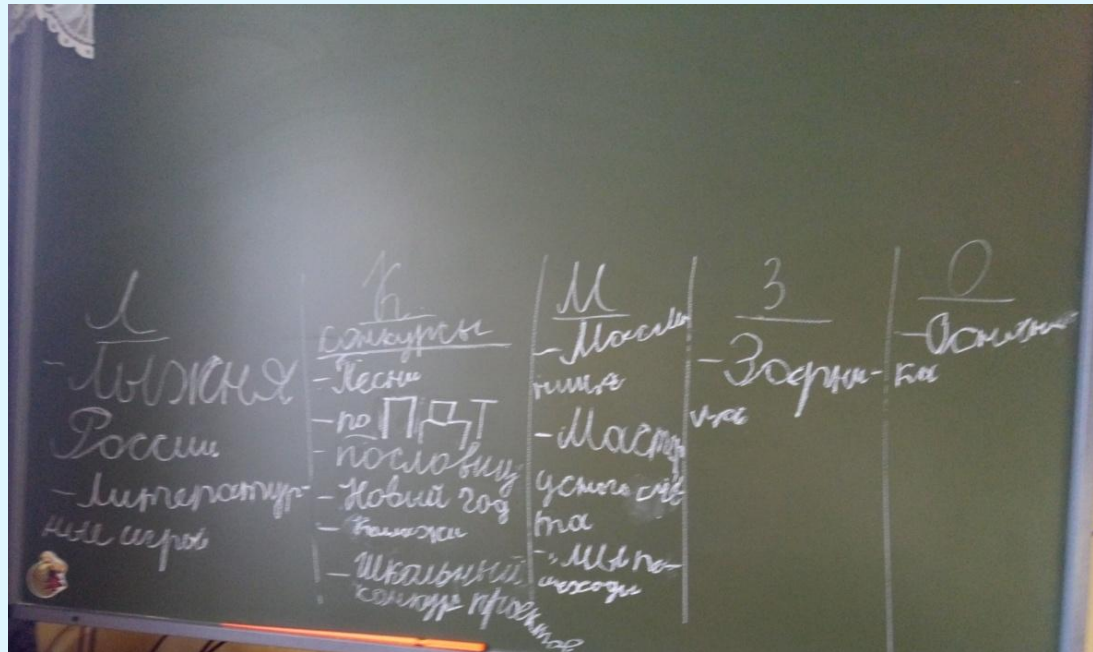 Л
- Лыжня
России
- Литератур-
ные игры
К
конкурсы
- Песни
- по ПДТ
- пословиц
- Новый год
- Школьный
конкурс проектов
М
- Маслен
ница
- Мастер
устного счё
та
- "Мы пе-
шеходы
З
- Зарни-
О